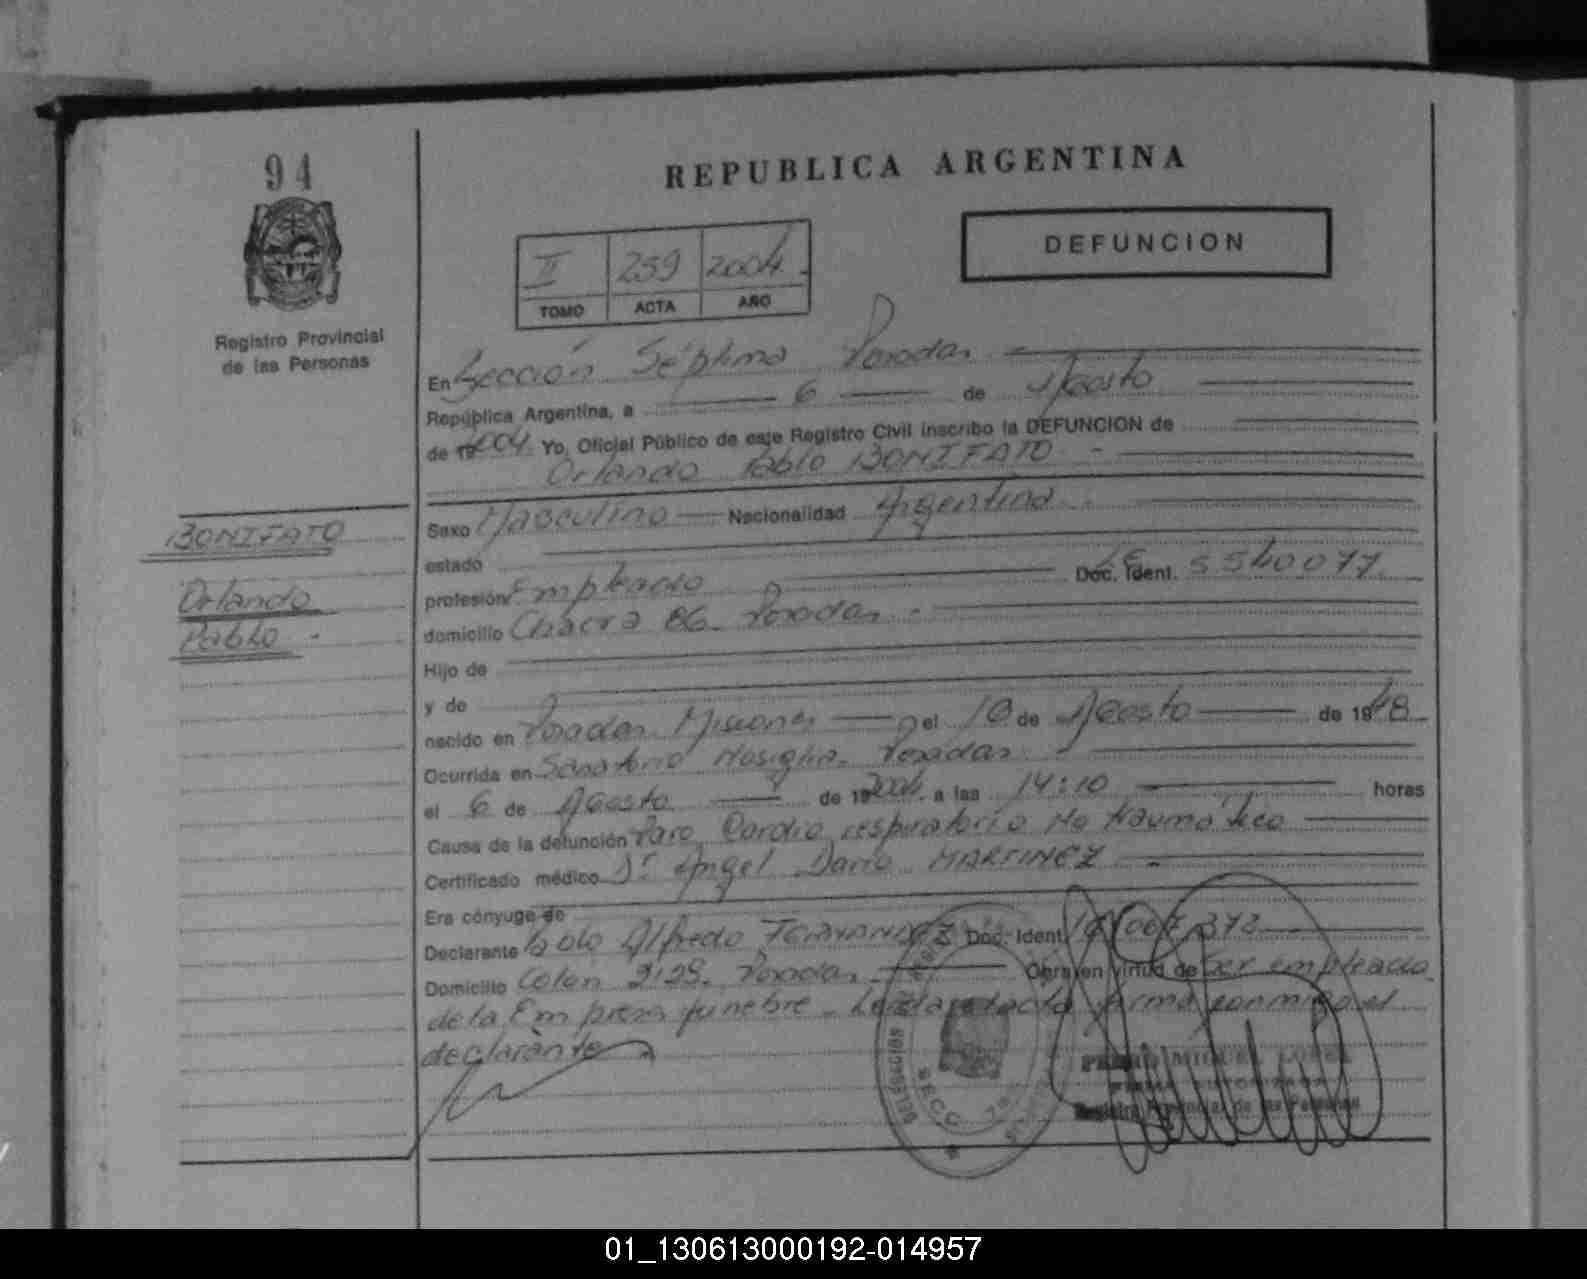 94
REPUBLICA ARGENTINA
DEFUNCION
II 259 2004.
TOMO ACTA AÑO
Registro Provincial
de las Personas
En Sección Séptima Posadas
República Argentina, a 6 de Agosto
de 19 2004. Yo, Oficial Público de este Registro Civil inscribo la DEFUNCION de
Orlando Pablo BONIFATO -
BONIFATO
Orlando
Pablo -
Sexo Masculino Nacionalidad Argentina -
estado
profesión Empleado Doc. Ident. LE 5540077
domicilio Chacra 86. Posadas -
Hijo de
y de
nacido en Posadas Misiones el 10 de Agosto de 1948
Ocurrida en Sanatorio Nosiglia. Posadas
el 6 de Agosto de 19 2004. a las 14:10 horas
Causa de la defunción Paro Cardio respiratorio No traumático
Certificado médico Dr Angel Dario MARTINEZ
Era cónyuge de
Declarante Alfredo FERNANDEZ Doc. Ident.
Domicilio Colon Posadas. Obra en virtud de Ser empleado
de la Empresa funebre. Leida el acta firma conmigo el
declarante
DELEGACION
SECC. 7a
MIGUEL LOPEZ
FIRMA AUTORIZADA
Registro Provincial de las Personas
01_130613000192-014957